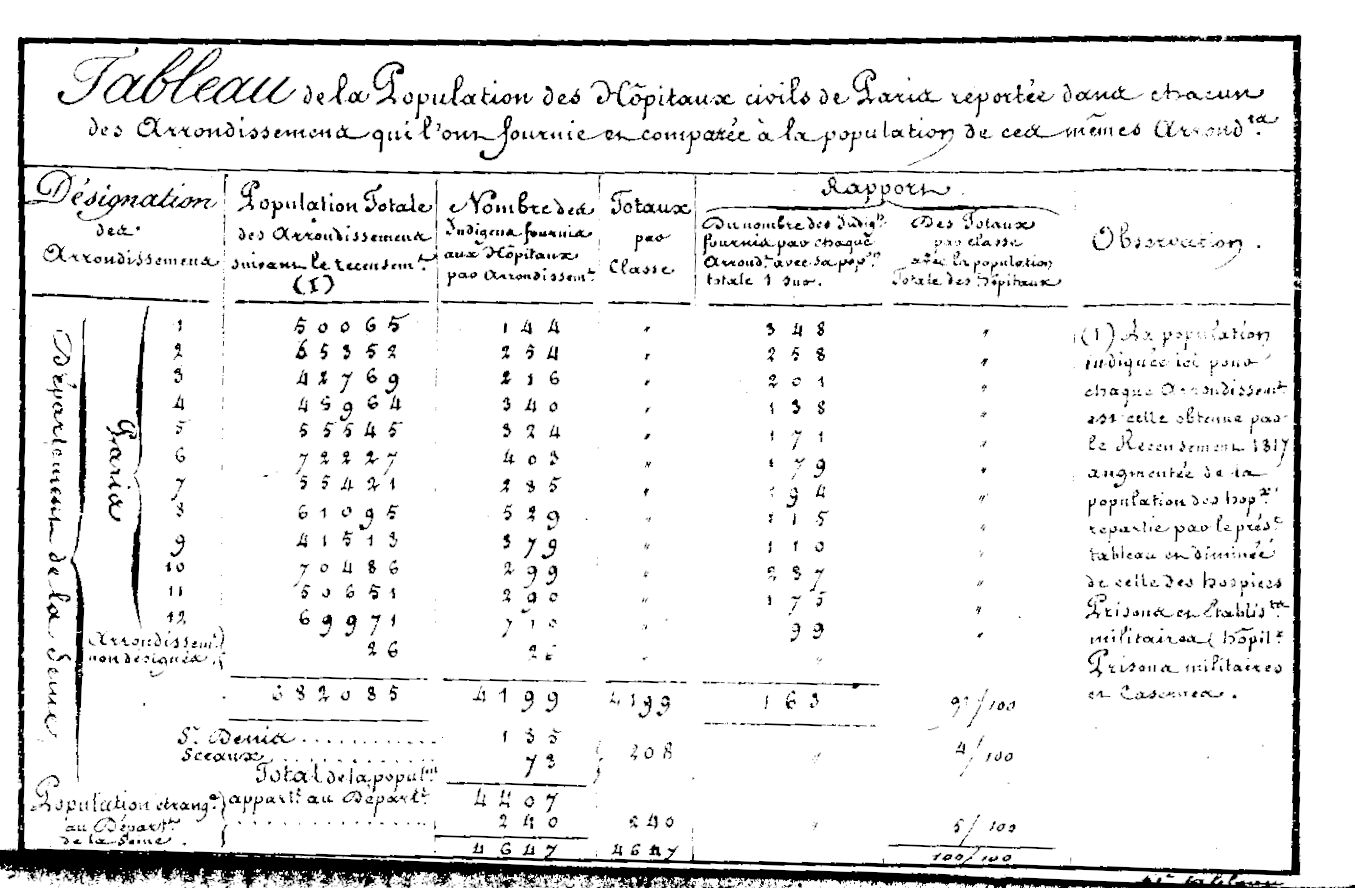 Tableau de la Population des Hôpitaux civils de Paris reportée dans chacun
des Arrondissemens qui l'ont fournie et comparée à la population de ces mêmes Arrond.ts
Désignation
des
Arrondissemens
Population Totale
des Arrondissemens
suivant le recensem.t
(I)
Nombre des
Indigens fournis
aux Hôpitaux
par Arrondissem.t
Totaux
par
Classe
Rapport
Du nombre des Indig.ns
fournis par chaque
Arrond.t avec sa pop.on
totale 1 sur.
Des Totaux
par classe
avec la population
Totale des hôpitaux
Observation.
Département de la Seine
Paris
1 50065 144 " 348 "
2 65352 254 " 258 "
3 42769 216 " 201 "
4 45964 340 " 138 "
5 55545 324 " 171 "
6 72227 403 " 179 "
7 55421 285 " 194 "
8 61095 529 " 115 "
9 41513 379 " 110 "
10 70486 299 " 237 "
11 50651 290 " 175 "
12 69971 710 " 99 "
Arrondissem.t
non désignés 26 26 " "
682085 4199 4199 163 91/100
S.t Denis .......... 135
Sceaux .......... 73
208 " 4/100
Total de la popul.on
appart.t au Départ.t 4407
Population étrang.e
au Départ.t
de la Seine. .......... 240 240 " 5/100
4647 4647 100/100
(1) La population
indiquée ici pour
chaque Arrondissem.t
est celle obtenue par
le Recensement 1817
augmentée de la
population des hop.x
repartie par le prés.t
tableau et diminée
de celle des hospices
Prisons et Etablis.ts
militaires (hôpit.x
Prisons militaires
et Casernes.